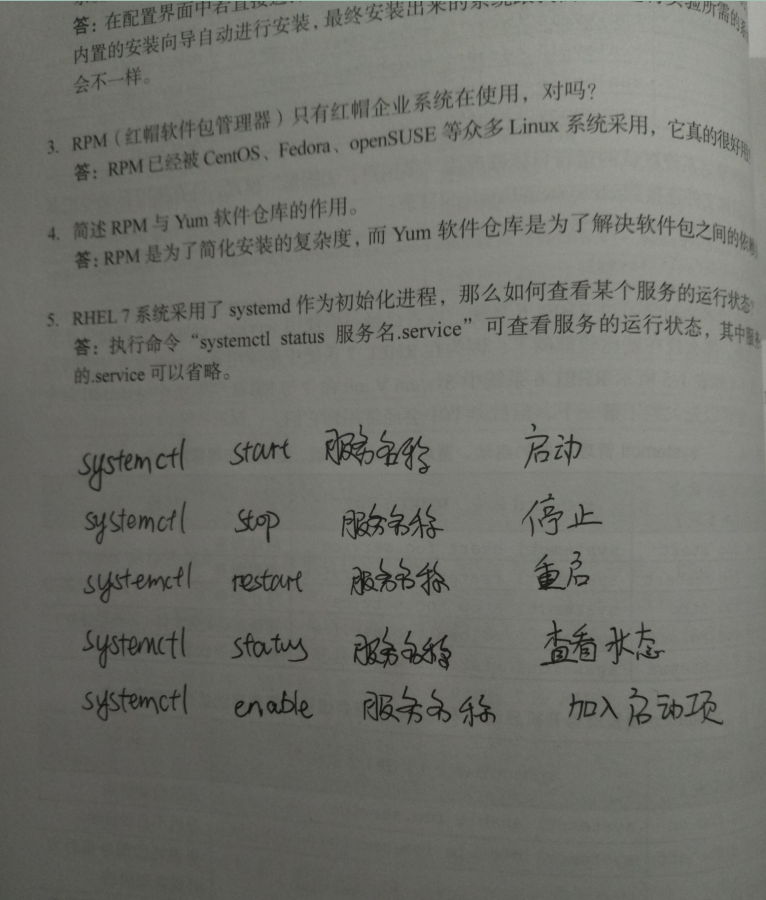 答：在配置界面中若直接
内置的安装向导自动进行安装，最终安装出来的系统 所需的系
会不一样。
3. RPM（红帽软件包管理器）只有红帽企业系统在使用，对吗？
答：RPM已经被CentOS、Fedora、openSUSE 等众多 Linux 系统采用，它真的很好用
4. 简述 RPM 与 Yum 软件仓库的作用。
答：RPM 是为了简化安装的复杂度，而 Yum 软件仓库是为了解决软件包之间的依赖
5. RHEL 7 系统采用了 systemd 作为初始化进程，那么如何查看某个服务的运行状态？
答：执行命令“systemctl status 服务名.service”可查看服务的运行状态，其中服务
的.service 可以省略。
systemctl start 服务名称 启动
systemctl stop 服务名称 停止
systemctl restart 服务名称 重启
systemctl status 服务名称 查看状态
systemctl enable 服务名称 加入启动项